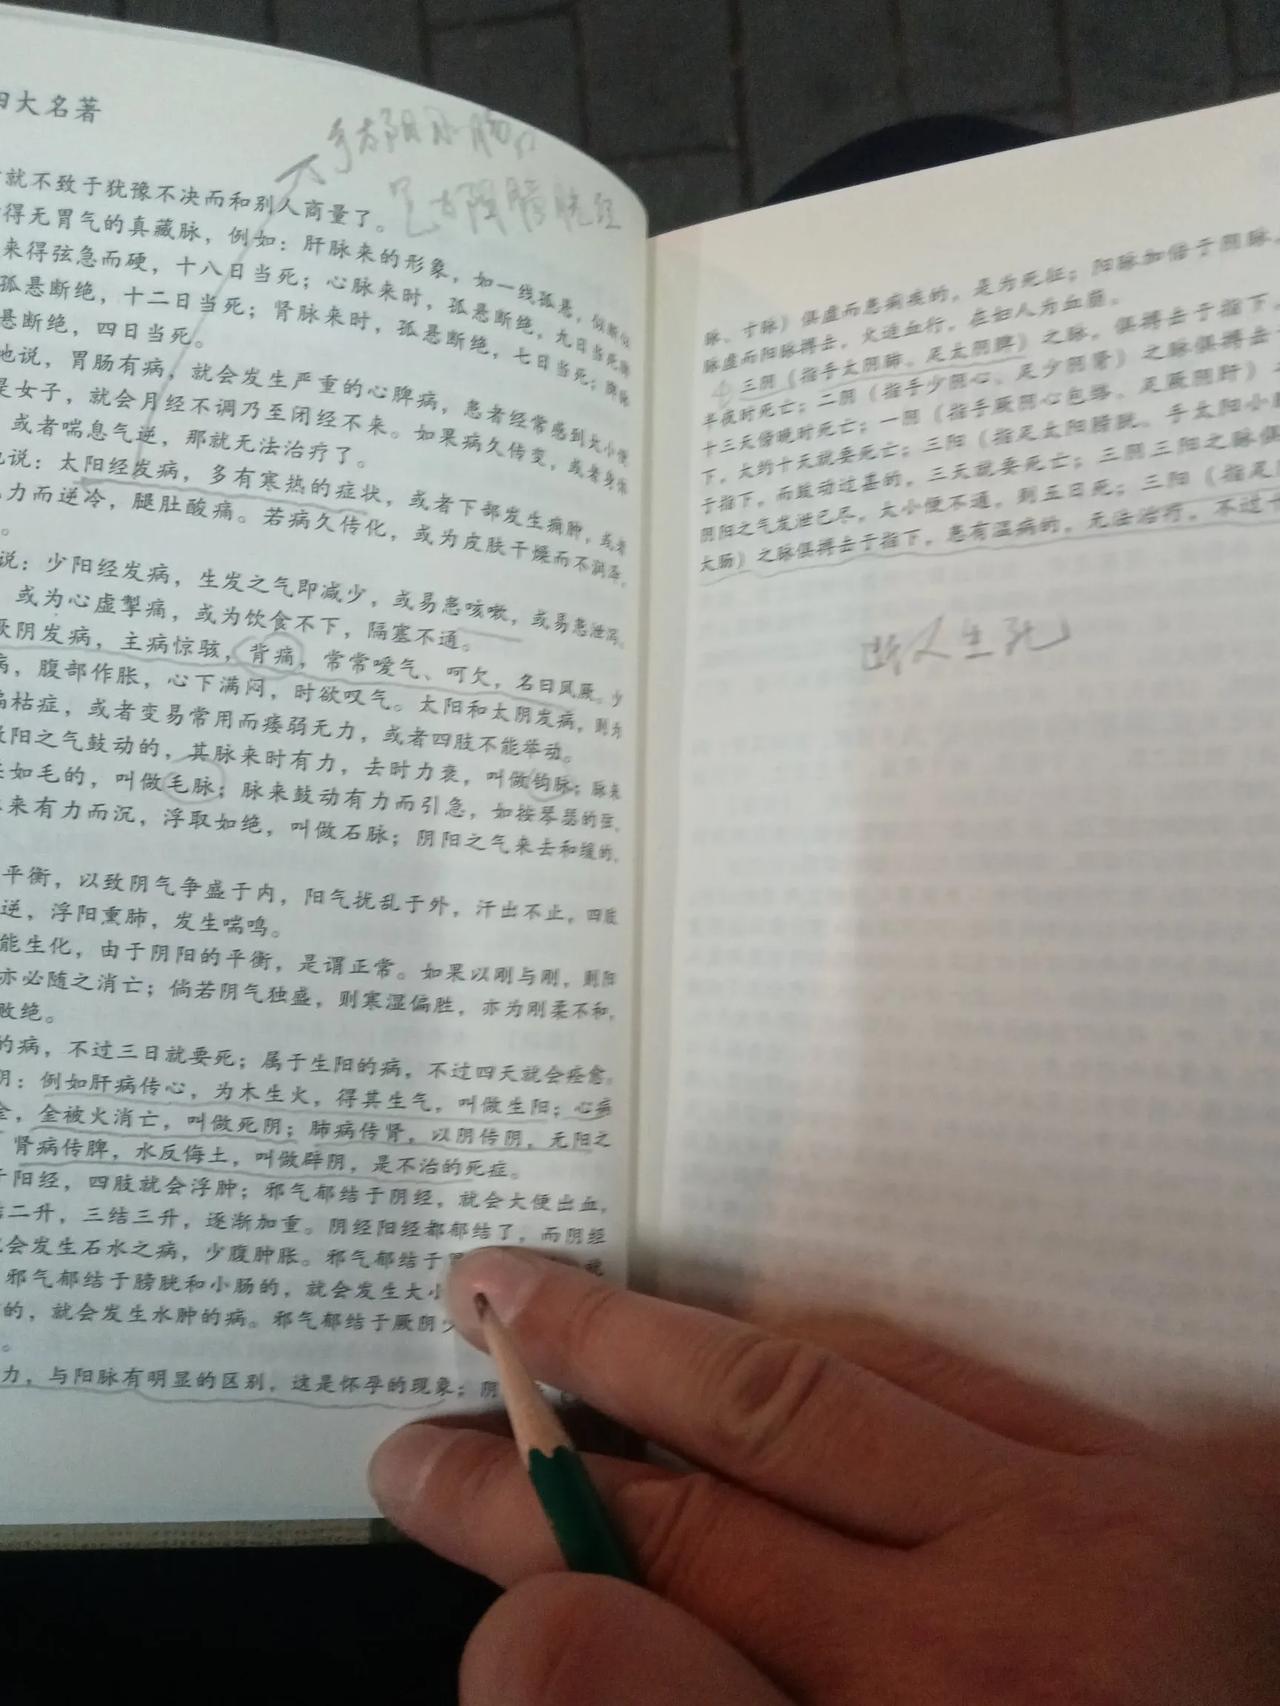 四大名著
手太阳小肠经
足太阳膀胱经
就不致于犹豫不决而和别人商量了。
得无胃气的真藏脉，例如：肝脉来的形象，如一线孤悬，似断似
来得弦急而硬，十八日当死；心脉来时，孤悬断绝，九日当死；肺脉
孤悬断绝，十二日当死；肾脉来时，孤悬断绝，七日当死；脾脉
悬断绝，四日当死。
地说，胃肠有病，就会发生严重的心脾病，患者经常感到大小便
是女子，就会月经不调乃至闭经不来。如果病久传变，或者身体
或者喘息气逆，那就无法治疗了。
说：太阳经发病，多有寒热的症状，或者下部发生痈肿，或者
力而逆冷，腿肚酸痛。若病久传化，或为皮肤干燥而不润泽，
。
说：少阳经发病，生发之气即减少，或易患咳嗽，或易患泄泻，
或为心虚掣痛，或为饮食不下，隔塞不通。
厥阴发病，主病惊骇，背痛，常常嗳气、呵欠，名曰风厥。少
病，腹部作胀，心下满闷，时欲叹气。太阳和太阴发病，则为
偏枯症，或者变易常用而痿弱无力，或者四肢不能举动。
阳之气鼓动的，其脉来时有力，去时力衰，叫做钩脉；脉来
如毛的，叫做毛脉；脉来鼓动有力而引急，如按琴瑟的弦，
来有力而沉，浮取如绝，叫做石脉；阴阳之气来去和缓的，
平衡，以致阴气争盛于内，阳气扰乱于外，汗出不止，四肢
逆，浮阳熏肺，发生喘鸣。
能生化，由于阴阳的平衡，是谓正常。如果以刚与刚，则阳
亦必随之消亡；倘若阴气独盛，则寒湿偏胜，亦为刚柔不和，
败绝。
的病，不过三日就要死；属于生阳的病，不过四天就会痊愈。
阴：例如肝病传心，为木生火，得其生气，叫做生阳；心病
金，金被火消亡，叫做死阴；肺病传肾，以阴传阴，无阳之
肾病传脾，水反侮土，叫做辟阴，是不治的死症。
于阳经，四肢就会浮肿；邪气郁结于阴经，就会大便出血，
结二升，三结三升，逐渐加重。阴经阳经都郁结了，而阴经
会发生石水之病，少腹肿胀。邪气郁结于
邪气郁结于膀胱和小肠的，就会发生大小
的，就会发生水肿的病。邪气郁结于厥阴少
。
力，与阳脉有明显的区别，这是怀孕的现象；阴
脉、寸脉）俱虚而患痢疾的，是为死征；阳脉加倍于阴脉，
脉虚而阳脉搏击，火迫血行，在妇人为血崩。
三阴（指手太阴肺、足太阴脾）之脉，俱搏击于指下，
半夜时死亡；二阴（指手少阴心、足少阴肾）之脉俱搏击
十三天傍晚时死亡；一阴（指手厥阴心包络、足厥阴肝）
下，大约十天就要死亡；三阳（指足太阳膀胱、手太阳小
于指下，而鼓动过甚的，三天就要死亡；三阴三阳之脉俱
阴阳之气发泄已尽，大小便不通，到五日死；三阳（指足
大肠）之脉俱搏击于指下，患有温病的，无法治疗，不过十
断人生死